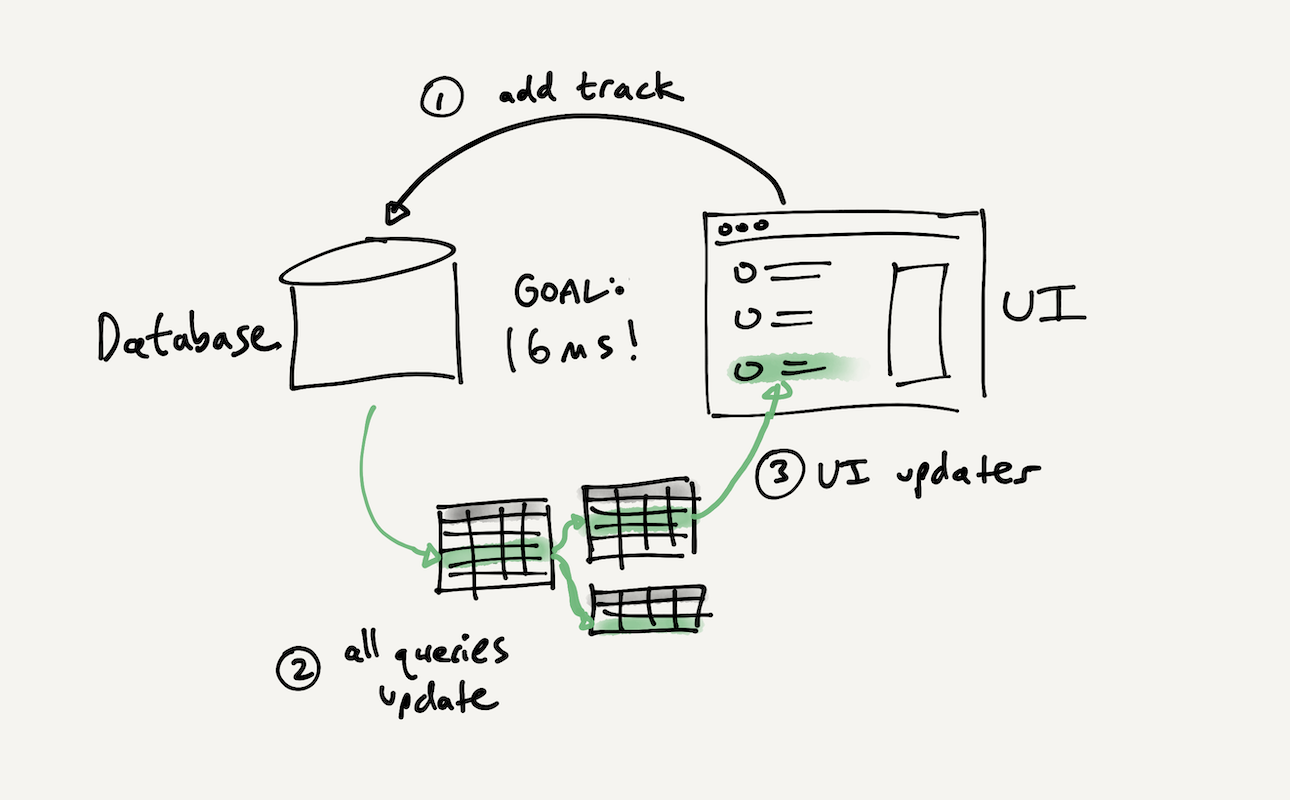 1 add track
Database
GOAL:
16ms!
UI
3 UI updates
2 all queries
update